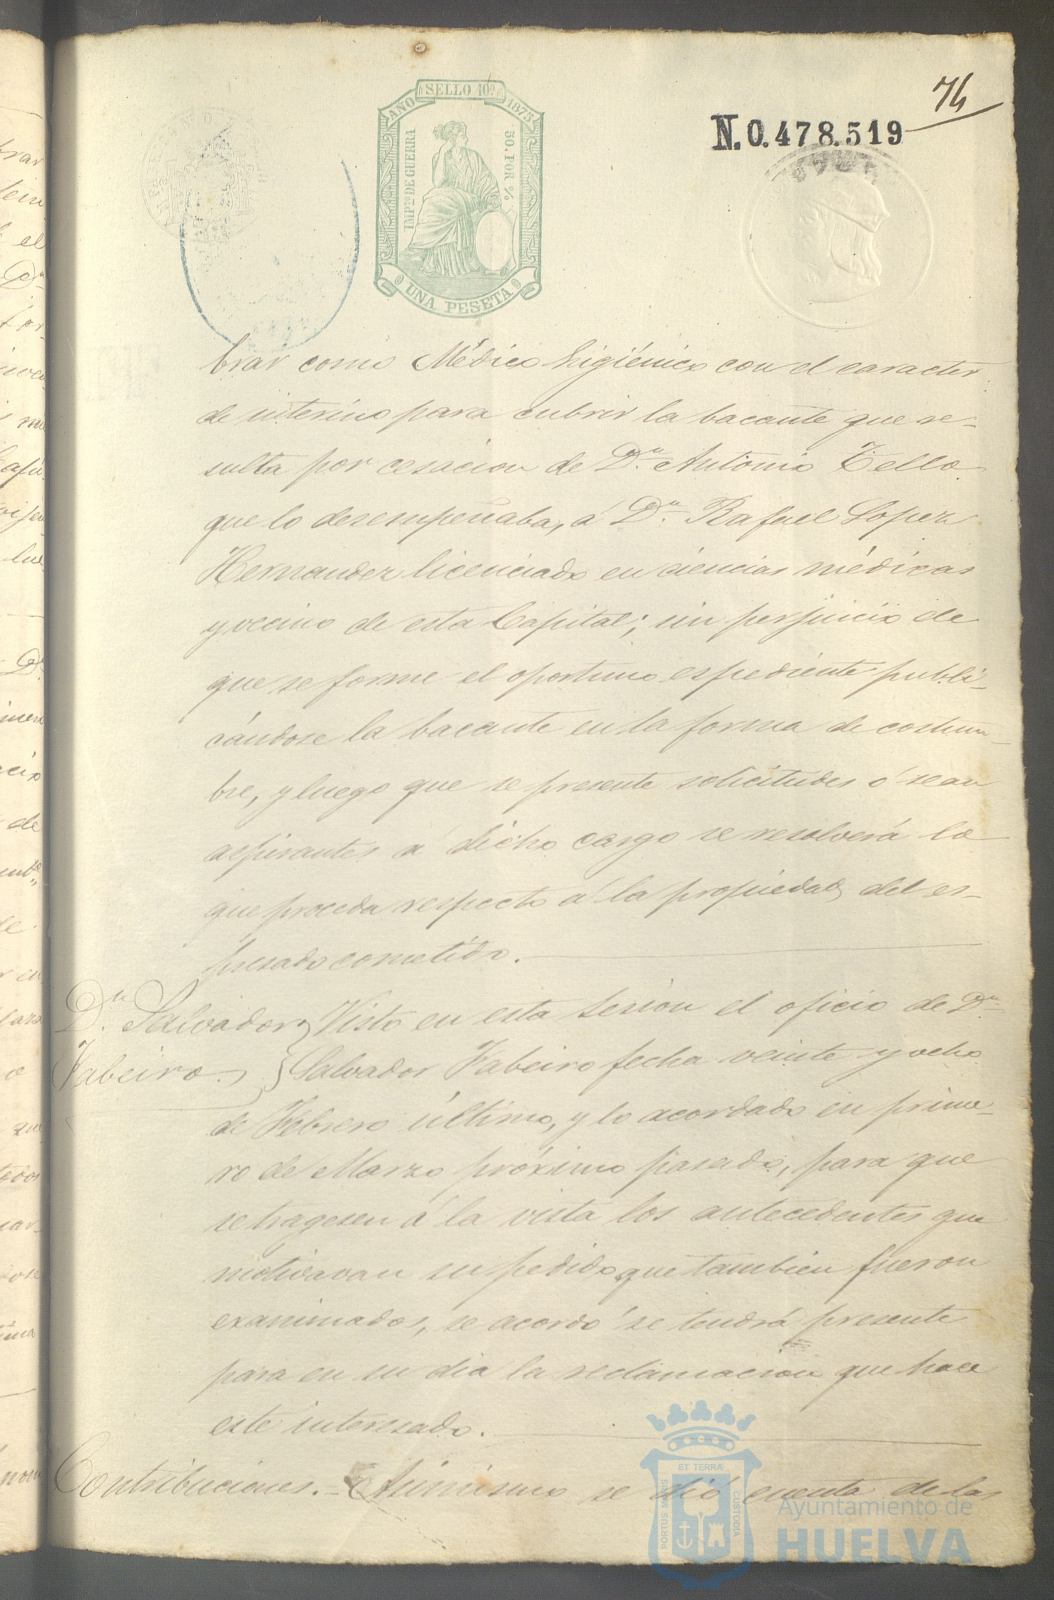 74
AÑO SELLO 10º 1875
IMPº DE GUERRA
50 POR %
UNA PESETA
N.0.478.519
brar como Médico higiénico con el caracter
de interino para cubrir la bacante que re-
sulta por cesacion de Dn. Antonio Tello
que lo desempeñaba, á Dn. Rafael Lopez
Hernandez licenciado en ciencias médicas
y vecino de esta Capital; sin perjuicio de
que se forme el oportuno espediente publi-
cándose la bacante en la forma de costum-
bre, y luego que se presente solicitudes ó sean
aspirantes á dicho cargo se resolverá lo
que proceda respecto á la propiedad del es-
presado cometido.
Dn. Salvador
Fabeiro.
Visto en esta sesion el oficio de Dn.
Salvador Fabeiro fecha veinte y ocho
de Febrero último, y lo acordado en prime-
ro de Marzo próximo pasado, para que
se tragesen á la vista los antecedentes que
motivavan su pedido, que tambien fueron
examinados, se acordó se tendrá presente
para en su dia la reclamacion que hace
este interesado.
Contribuciones. - Asimismo se dió cuenta de las
PORTUS MARIS ET TERRA CUSTODIA
Ayuntamiento de
HUELVA